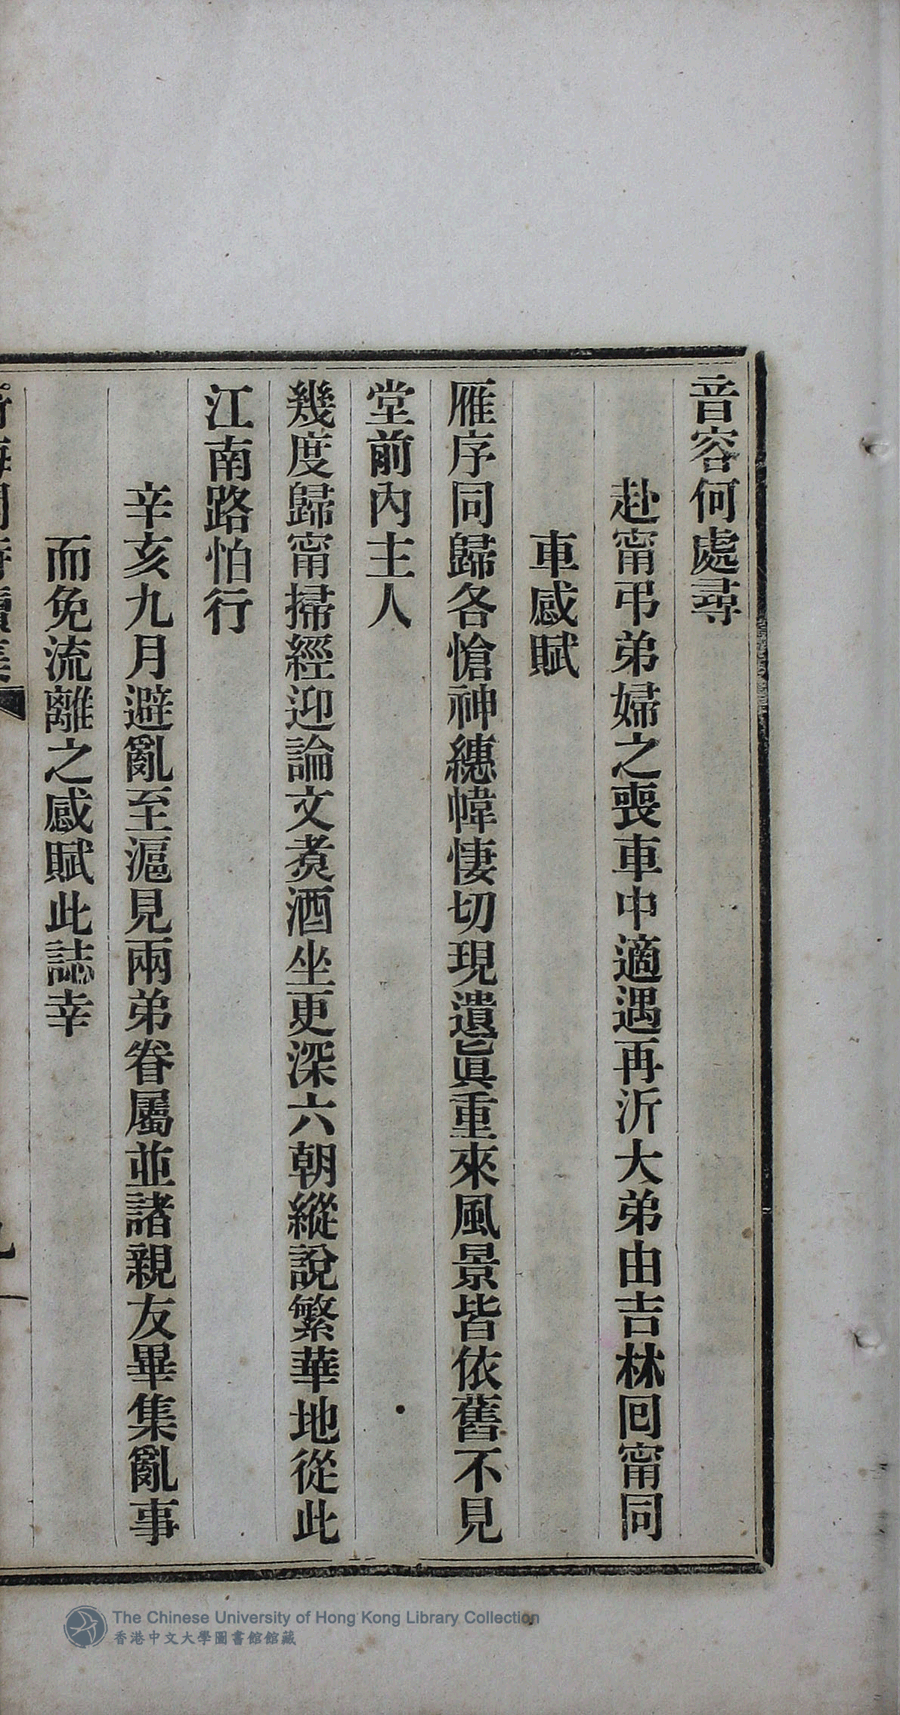 音容何處尋
赴甯弔弟婦之喪車中適遇再沂大弟由吉林回甯同
車感賦
雁序同歸各愴神繐幃悽切現遺眞重來風景皆依舊不見
堂前內主人
幾度歸甯掃經迎論文煑酒坐更深六朝縱說繁華地從此
江南路怕行
辛亥九月避亂至滬見兩弟眷屬並諸親友畢集亂事
而免流離之感賦此誌幸
The Chinese University of Hong Kong Library Collection
香港中文大學圖書館館藏